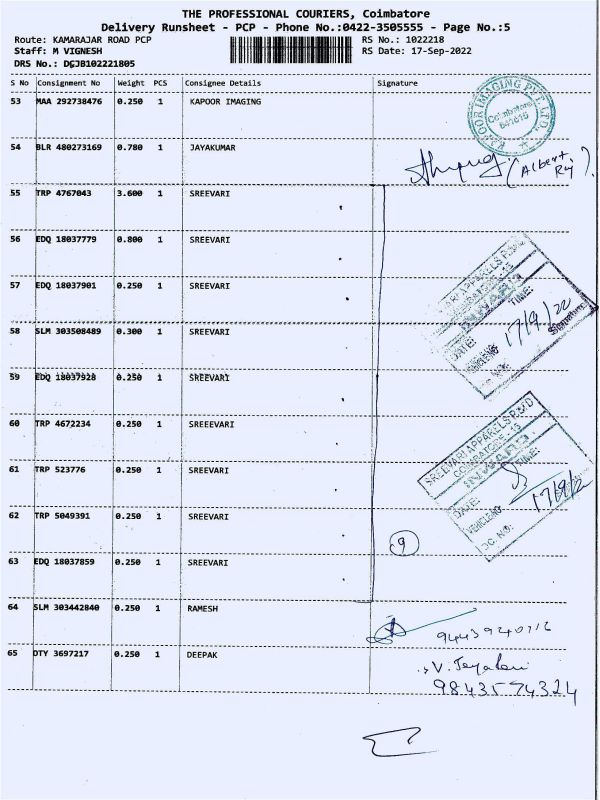 THE PROFESSIONAL COURIERS, Coimbatore
Delivery Runsheet - PCP - Phone No.:0422-3505555 - Page No.:5
Route: KAMARAJAR ROAD PCP RS No.: 1022218
Staff: M VIGNESH RS Date: 17-Sep-2022
DRS No.: DGJB102221805
S No Consignment No Weight PCS Consignee Details Signature
53 MAA 292738476 0.250 1 KAPOOR IMAGING
KAPOOR IMAGING PVT. LTD.
Coimbatore
641015
54 BLR 480273169 0.780 1 JAYAKUMAR
(Albert
55 TRP 4767043 3.600 1 SREEVARI
56 EDQ 18037779 0.800 1 SREEVARI
57 EDQ 18037901 0.250 1 SREEVARI
TIME:
17/9/22
DATE:
Signature
58 SLM 303508489 0.300 1 SREEVARI
59 EDQ 18037928 0.250 1 SREEVARI
60 TRP 4672234 0.250 1 SREEEVARI
SREEVARI APPARELS
COIMBATORE - 15
INWARD
61 TRP 523776 0.250 1 SREEVARI
DATE: TIME:
VEHICLE NO:
DC. NO:
62 TRP 5049391 0.250 1 SREEVARI
9
63 EDQ 18037859 0.250 1 SREEVARI
64 SLM 303442840 0.250 1 RAMESH
65 DTY 3697217 0.250 1 DEEPAK
9843574324